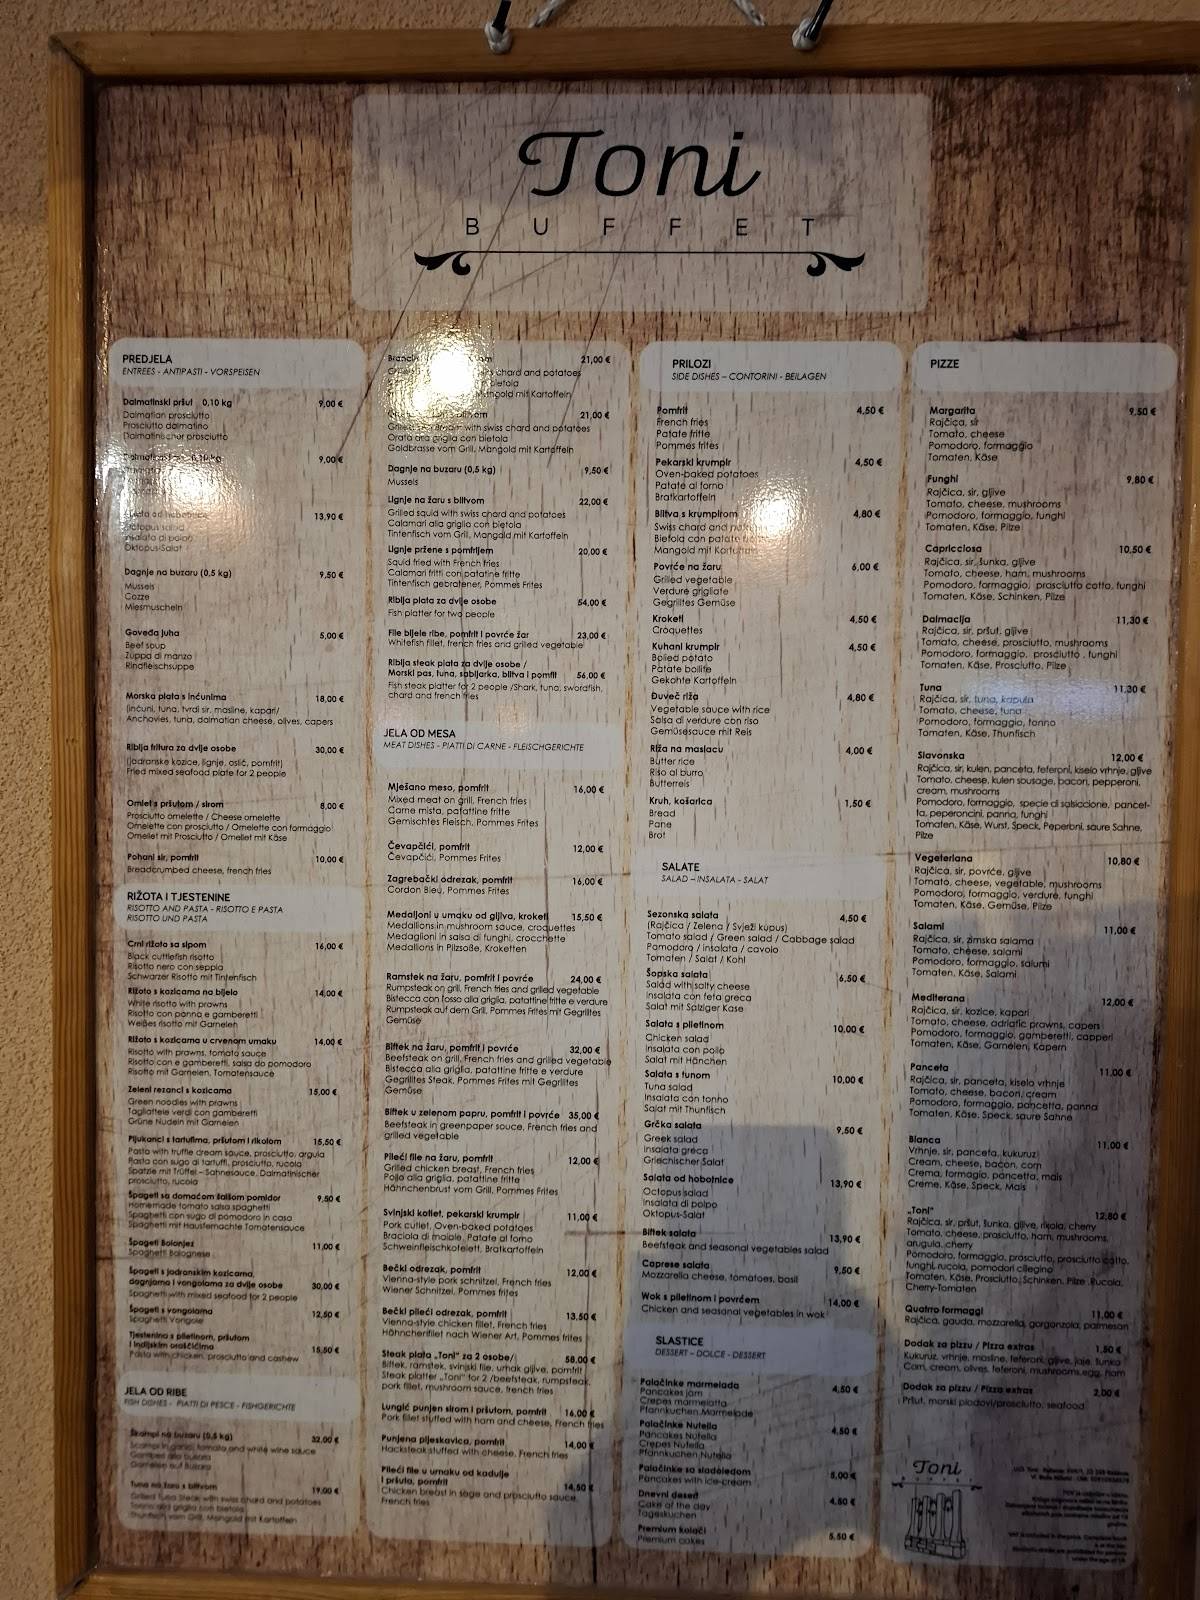 Toni
BUFFET
PREDJELA
ENTREES - ANTIPASTI - VORSPEISEN
Dalmatinski pršut 0,10 kg 9,00 €
Dalmatian prosciutto
Prosciutto dalmatino
Dalmatinischer prosciutto
9,00 €
13,90 €
Octopus salad
Insalata di polpo
Oktopus-Salat
Dagnje na buzaru (0,5 kg) 9,50 €
Mussels
Cozze
Miesmuscheln
Goveđa juha 5,00 €
Beef soup
Zuppa di manzo
Rindfleischsuppe
Morska plata s inćunima 18,00 €
(inćuni, tuna, tvrdi sir, masline, kapari/
Anchovies, tuna, dalmatian cheese, olives, capers
Riblja fritura za dvije osobe 30,00 €
(jadranske kozice, lignje, oslić, pomfrit)
Fried mixed seafood plate for 2 people
Omlet s pršutom / sirom 8,00 €
Prosciutto omelette / Cheese omelette
Omelette con prosciutto / Omelette con formaggio
Omellet mit Prosciutto / Omellet mit Käse
Pohani sir, pomfrit 10,00 €
Breadcrumbed cheese, french fries
RIŽOTA I TJESTENINE
RISOTTO AND PASTA - RISOTTO E PASTA
RISOTTO UND PASTA
Crni rižoto sa sipom 16,00 €
Black cuttlefish risotto
Risotto nero con seppia
Schwarzer Risotto mit Tintenfisch
Rižoto s kozicama na bijelo 14,00 €
White risotto with prawns
Risotto con panna e gamberetti
Weißes risotto mit Garnelen
Rižoto s kozicama u crvenom umaku 14,00 €
Risotto with prawns, tomato sauce
Risotto con e gamberetti, salsa do pomodoro
Risotto mit Garnelen, Tomatensauce
Zeleni rezanci s kozicama 15,00 €
Green noodles with prawns
Tagliattele verdi con gamberetti
Grüne Nudeln mit Garnelen
Pljukanci s tartufima, pršutom i rikolom 15,50 €
Pasta with truffle cream sauce, prosciutto, arugula
Pasta con sugo di tartuffi, prosciutto, rucola
Spatzle mit Trüffel – Sahnesauce, Dalmatinischer
prosciutto, rucola
Špageti sa domaćom šalšom pomidor 9,50 €
Homemade tomato salsa spaghetti
Spaghetti con sugo di pomodoro in casa
Spaghetti mit Hausfemachte Tomatensauce
Špageti Bolonjez 11,00 €
Spaghetti Bolognese
Špageti s jadranskim kozicama,
dagnjama i vongolama za dvije osobe 30,00 €
Spaghetti with mixed seafood for 2 people
Špageti s vongolama 12,50 €
Spaghetti Vongole
Tjestenina s piletinom, pršutom
i indijskim oraščićima 15,50 €
Pasta with chicken, prosciutto and cashew
JELA OD RIBE
FISH DISHES - PIATTI DI PESCE - FISHGERICHTE
Škampi na buzaru (0,5 kg) 32,00 €
Scampi in garlic, tomato and white wine sauce
Gamberi alla buzara
Garnelen auf Buzara
Tuna na žaru s blitvom 19,00 €
Grilled tuna steak with swiss chard and potatoes
Tonno alla griglia con bietola
Thunfisch vom Grill, Mangold mit Kartoffeln
21,00 €
chard and potatoes
bietola
Mangold mit Kartoffeln
21,00 €
with swiss chard and potatoes
Orata alla griglia con bietola
Goldbrasse vom Grill, Mangold mit Kartoffeln
Dagnje na buzaru (0,5 kg) 9,50 €
Mussels
Lignje na žaru s blitvom 22,00 €
Grilled squid with swiss chard and potatoes
Calamari alla griglia con bietola
Tintenfisch vom Grill, Mangald mit Kartoffeln
Lignje pržene s pomfrijem 20,00 €
Squid fried with French fries
Calamari fritti con patatine fritte
Tintenfisch gebratener, Pommes Frites
Riblja plata za dvije osobe 54,00 €
Fish platter for two people
File bijele ribe, pomfrit i povrće žar 23,00 €
Whitefish fillet, french fries and grilled vegetable
Riblja steak plata za dvije osobe /
Morski pas, tuna, sabljarka, blitva i pomfit 56,00 €
Fish steak platter for 2 people /Shark, tuna, swordfish,
chard and french fries
JELA OD MESA
MEAT DISHES - PIATTI DI CARNE - FLEISCHGERICHTE
Mješano meso, pomfrit 16,00 €
Mixed meat on grill, French fries
Carne mista, patattine fritte
Gemischtes Fleisch, Pommes Frites
Čevapčići, pomfrit 12,00 €
Čevapčići, Pommes Frites
Zagrebački odrezak, pomfrit 16,00 €
Cordon Bleu, Pommes Frites
Medaljoni u umaku od gljiva, kroketi 15,50 €
Medallions in mushroom sauce, croquettes
Medaglioni in salsa di funghi, crocchette
Medallions in Pilzsoße, Kroketten
Ramstek na žaru, pomfrit i povrće 24,00 €
Rumpsteak on grill, French fries and grilled vegetable
Bistecca con l'osso alla griglia, patattine fritte e verdure
Rumpsteak auf dem Grill, Pommes Frites mit Gegrilltes
Gemüse
Biftek na žaru, pomfrit i povrće 32,00 €
Beefsteak on grill, French fries and grilled vegetable
Bistecca alla griglia, patattine fritte e verdure
Gegrilltes Steak, Pommes Frites mit Gegriltes
Gemüse
Biftek u zelenom papru, pomfrit i povrće 35,00 €
Beefsteak in greenpaper souce, French fries and
grilled vegetable
Pileći file na žaru, pomfrit 12,00 €
Grilled chicken breast, French fries
Pollo alla griglia, patattine fritte
Hähnchenbrust vom Grill, Pommes Frites
Svinjski kotlet, pekarski krumpir 11,00 €
Pork cutlet, Oven-baked potatoes
Braciola di maiale, Patate al forno
Schweinfleischkotelett, Bratkartoffeln
Bečki odrezak, pomfrit 12,00 €
Vienna-style pork schnitzel, French fries
Wiener Schnitzel, Pommes frites
Bečki pileći odrezak, pomfrit 13,50 €
Vienna-style chicken fillet, French fries
Hähncherifilet nach Wiener Art, Pommes frites
Steak plata „Toni" za 2 osobe/ 58,00 €
Biftek, ramstek, svinjski file, umak gljive, pomfrit
Steak platter „Toni" for 2 /beefsteak, rumpsteak,
pork fillet, mushroom sauce, french fries
Lungić punjen sirom i pršutom, pomfrit 16,00 €
Pork fillet stuffed with ham and cheese, French fries
Punjena pljeskavica, pomfrit 14,00 €
Hacksteak stuffed with cheese, French fries
Pileći file u umaku od kadulje
i pršuta, pomfrit 14,50 €
Chicken breast in sage and prosciutto sauce,
French fries
PRILOZI
SIDE DISHES – CONTORINI - BEILAGEN
Pomfrit 4,50 €
French fries
Patate fritte
Pommes frites
Pekarski krumpir 4,50 €
Oven-baked potatoes
Patate al forno
Bratkartoffeln
Blitva s krumpirom 4,80 €
Swiss chard and
Bietola con patate
Mangold mit
Povrće na žaru 6,00 €
Grilled vegetable
Verdure grigliate
Gegrilltes Gemüse
Kroketi 4,50 €
Croquettes
Kuhani krumpir 4,50 €
Boiled potato
Patate bollite
Gekohte Kartoffeln
Đuveč riža 4,80 €
Vegetable sauce with rice
Salsa di verdure con riso
Gemüsesauce mit Reis
Riža na maslacu 4,00 €
Butter rice
Riso al burro
Butterreis
Kruh, košarica 1,50 €
Bread
Pane
Brot
SALATE
SALAD – INSALATA - SALAT
Sezonska salata 4,50 €
(Rajčica / Zelena / Svježi kupus)
Tomato salad / Green salad / Cabbage salad
Pomodoro / insalata / cavolo
Tomaten / Salat / Kohl
Šopska salata 6,50 €
Salad with salty cheese
Insalata con feta greca
Salat mit Salziger Kase
Salata s piletinom 10,00 €
Chicken salad
Insalata con pollo
Salat mit Hänchen
Salata s tunom 10,00 €
Tuna salad
Insalata con tonho
Salat mit Thunfisch
Grčka salata 9,50 €
Greek salad
Insalata greca
Griechischer Salat
Salata od hobotnice 13,90 €
Octopus salad
Insalata di polpo
Oktopus-Salat
Biftek salata 13,90 €
Beefsteak and seasonal vegetables salad
Caprese salata 9,50 €
Mozzarella cheese, tomatoes, basil
Wok s piletinom i povrćem 14,00 €
Chicken and seasonal vegetables in wok
SLASTICE
DESSERT – DOLCE - DESSERT
Palačinke marmelada 4,50 €
Pancakes jam
Crepes marmelatta
Pfannkuchen Marmelade
Palačinke Nutella 4,50 €
Pancakes Nutella
Crepes Nutella
Pfannkuchen Nutella
Palačinke sa sladoledom 5,00 €
Pancakes with ice-cream
Dnevni desert 4,50 €
Cake of the day
Tageskuchen
Premium kolači 5,50 €
Premium cakes
PIZZE
Margarita 9,50 €
Rajčica, sir
Tomato, cheese
Pomodoro, formaggio
Tomaten, Käse
Funghi 9,80 €
Rajčica, sir, gljive
Tomato, cheese, mushrooms
Pomodoro, formaggio, funghi
Tomaten, Käse, Pilze
Capricciosa 10,50 €
Rajčica, sir, šunka, gljive
Tomato, cheese, ham, mushrooms
Pomodoro, formaggio, prasciutto cotto, funghi
Tomaten, Käse, Schinken, Pilze
Dalmacija 11,30 €
Rajčica, sir, pršut, gljive
Tomato, cheese, prosciutto, mushrooms
Pomodoro, formaggio, prosciutto, funghi
Tomaten, Käse, Prosciutto, Pilze
Tuna 11,30 €
Rajčica, sir, tuna, kapula
Tomato, cheese, tuna
Pomodoro, formaggio, tonno
Tomaten, Käse, Thunfisch
Slavonska 12,00 €
Rajčica, sir, kulen, panceta, feferoni, kiselo vrhnje, gljive
Tomato, cheese, kulen sousage, bacon, pepperoni,
cream, mushrooms
Pomodoro, formaggio, specie di salsiccione, pancet-
ta, peperoncini, panna, funghi
Tomaten, Käse, Wurst, Speck, Peperoni, saure Sahne,
Pilze
Vegeteriana 10,80 €
Rajčica, sir, povrće, gljive
Tomato, cheese, vegetable, mushrooms
Pomodoro, formaggio, verdure, funghi
Tomaten, Käse, Gemüse, Pilze
Salami 11,00 €
Rajčica, sir, zimska salama
Tomato, cheese, salami
Pomodoro, formaggio, salumi
Tomaten, Käse, Salami
Mediterana 12,00 €
Rajčica, sir, kozice, kapari
Tomato, cheese, adriatic prawns, capers
Pomodoro, formaggio, gamberetti, capperi
Tomaten, Käse, Garnelen, Kapern
Panceta 11,00 €
Rajčica, sir, panceta, kiselo vrhnje
Tomato, cheese, bacon, cream
Pomodoro, formaggio, pancetta, panna
Tomaten, Käse, Speck, saure Sahne
Bianca 11,00 €
Vrhnje, sir, panceta, kukuruz
Cream, cheese, bacon, corn
Crema, formagio, pancetta, mais
Creme, Käse, Speck, Mais
„Toni" 12,80 €
Rajčica, sir, pršut, šunka, gljive, rikola, cherry
Tomato, cheese, prosciutto, ham, mushrooms,
arugula, cherry
Pomodoro, formaggio, prosciutto, prosciutto cotto,
funghi, rucola, pomodori ciliegino
Tomaten, Käse, Prosciutto, Schinken, Pilze, Rucola,
Cherry-Tomaten
Quattro formaggi 11,00 €
Rajčica, gauda, mozzarella, gorgonzola, parmesan
Dodak za pizzu / Pizza extras 1,50 €
Kukuruz, vrhnje, masline, feferoni, gljive, jaje, šunka
Corn, cream, olives, feferoni, mushrooms, egg, ham
Dodak za pizzu / Pizza extras 2,00 €
Pršut, morski plodovi/prosciutto, seafood
Toni